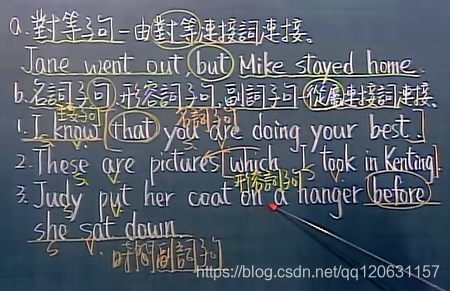 a. 對等子句 — 由對等連接詞連接。
Jane went out, but Mike stayed home.
b. 名詞子句, 形容詞子句, 副詞子句 - 從屬連接詞連接。
主要子句 名詞子句
1. I know that you are doing your best.
S. V. S. V.
2. These are pictures which I took in Kenting.
S. V. 形容詞子句 S. V.
3. Judy put her coat on a hanger before
S. V.
she sat down.
S. V. 時間副詞子句
https://blog.csdn.net/qq120631157